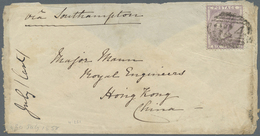 via Southampton
POSTAGE
Major Mann
Royal Engineers
Hong Kong
China
July